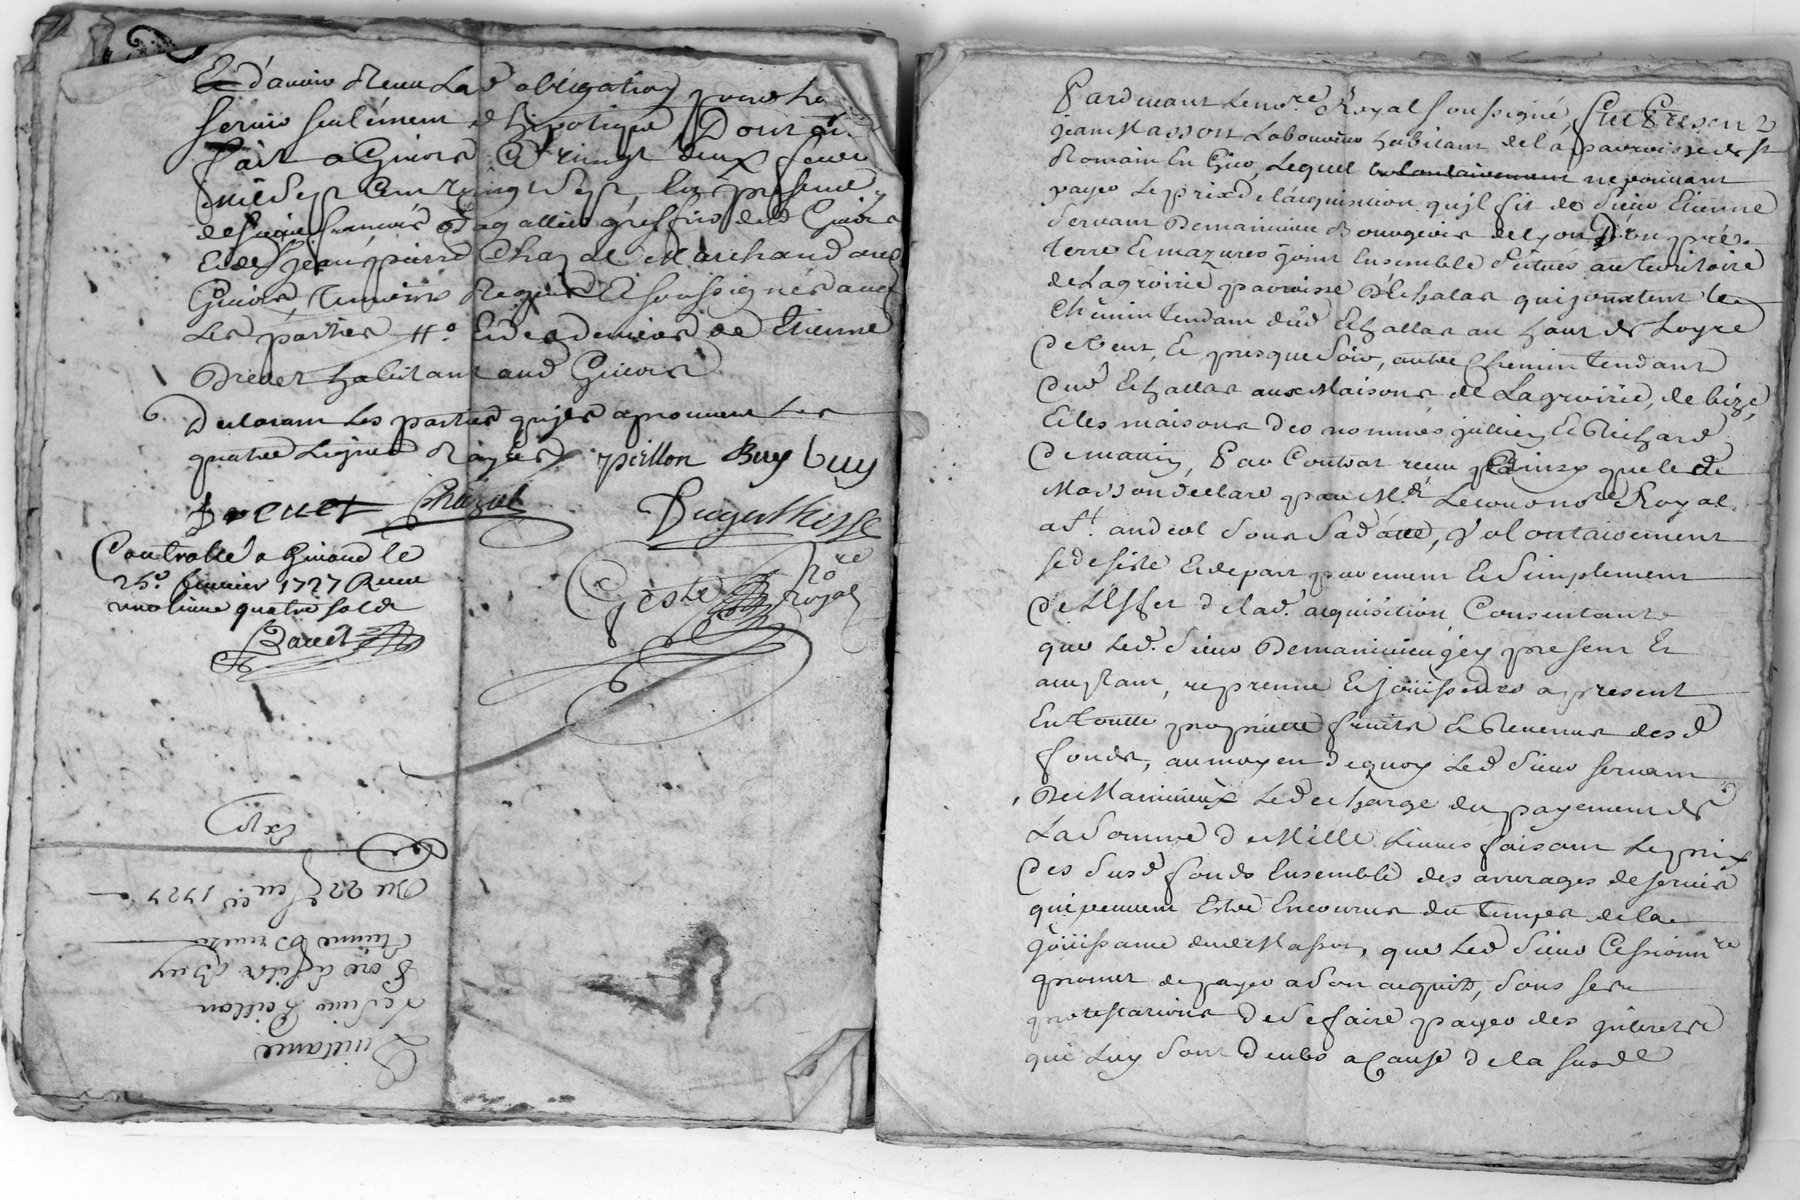 Et d'avoir Receu Lad obligation pour luy
servir seulement d'hipotique Dont acte
fait a Givors Ce vingt deux fevrier
mil sept cent vingt sept, En presence
de sieur françois Dagallier greffier dud Givors
Et de jean pierre Chazal Marchand aud
Givors, temoins Requis Et soussignés avec
Les parties
Et des deniers de Etienne
Brevet habitant aud Givors
Declarant Les parties qu'jls aprouvent Les
quatre Lignes Rayées
peillon Buy buy
Brevet Chazal
Dagallier
Controllé a Givord le
25e. fevrier 1727 Receu
une livre quatre sols
Geste Nore
royal
Exp
Du 22 fevr 1727
Etienne Brevet
pere & fils Buy
Le sieur Peillon
Quittance
Pardevant Le nore Royal soussigné, fut Present
jean Masson Laboureur habitant de la parroisse de St
Romain En Gier, Lequel volontairement ne pouvant
payer Le prix de l'acquisition qu'jl fit de Sieur Etienne
Servant Demanivieu Bourgeois de Lyon D'un pré,
terre Et mazures joint Ensemble situés au territoire
de Lagroirie parroisse D'Echalas qui jouxtent le
Chemin tendant dud Echallas au haut de Loyre
de vent, Et presque soir, autre Chemin tendant
dud Echallas aux Maisons de Lagroirie, de bize,
Et les maisons des nommés jullien Et Richard
de matin, Par Contrat receu que led
Masson declare par Me. nore Royal
a St. andeol sous sa datte, volontairement
se desiste Et depart purement Et simplement
de L'Effet de lad. acquisition, Consentant
que Led. Sieur Demanivieu jcy present Et
acceptant, reprenne Et jouisse des a present
En toutte proprieté fruits Et Revenus desd
fonds, au moyen de quoy Led Sieur servant
De Manivieux Led charge du payement de
La Somme de Mille Livres faisant Le prix
des susd fonds Ensemble des arrerages de servis
qui peuvent Estre Encourus du temps de la
jouissance dud Masson, que Led Sieur Cessionre
promet de payer a son acquit, sous ses
protestations de se faire payer des jnterets
qui Luy sont deubs a Cause de la susd